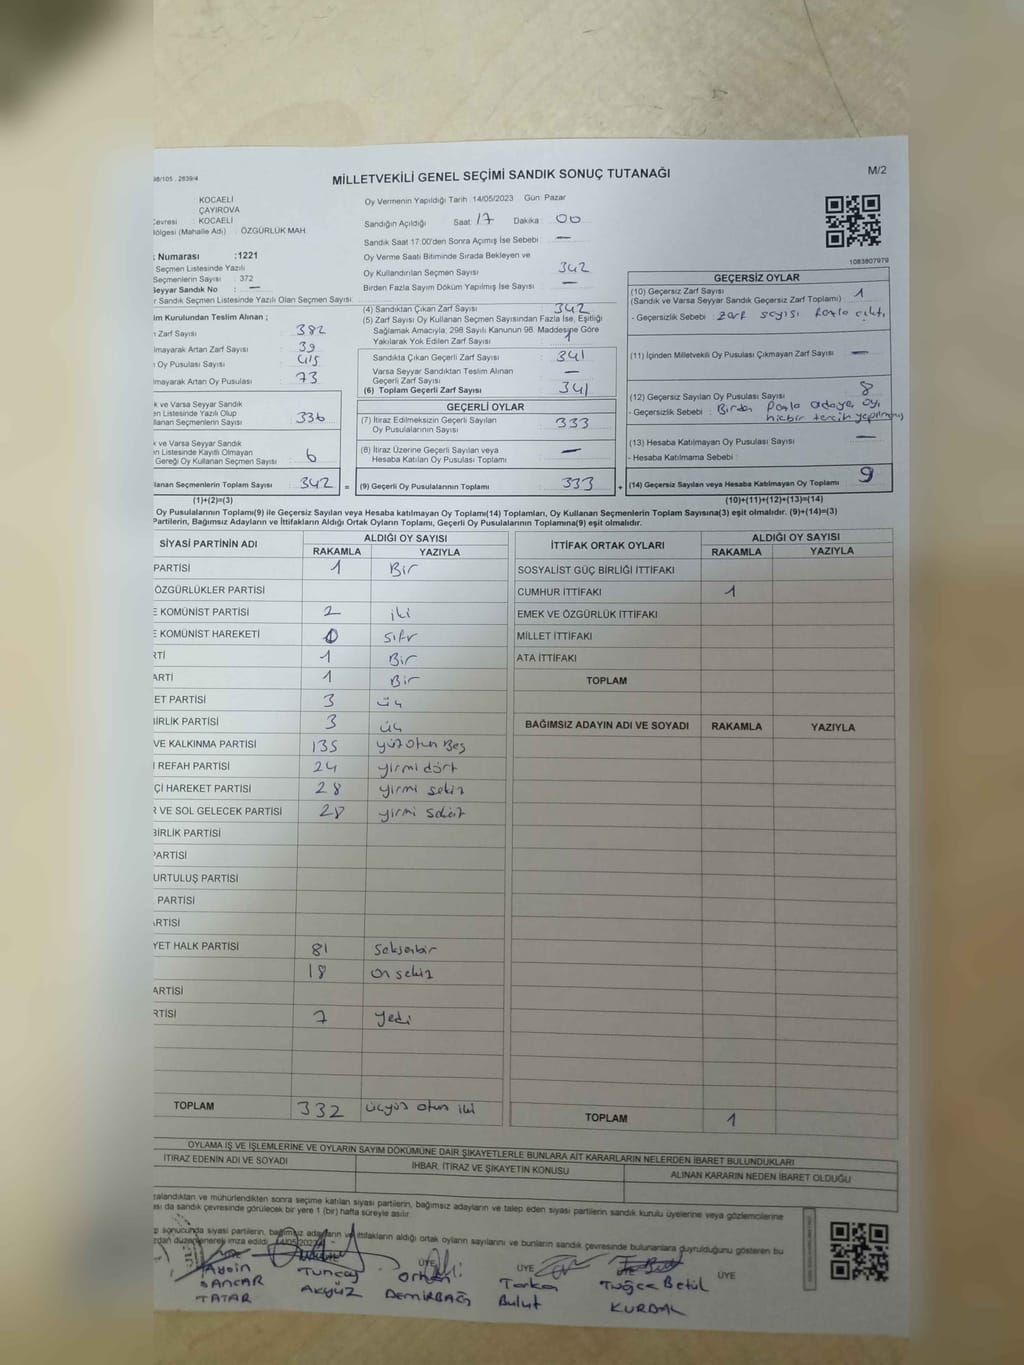 98/105 . 2839/4
MİLLETVEKİLİ GENEL SEÇİMİ SANDIK SONUÇ TUTANAĞI
M/2
KOCAELİ
ÇAYIROVA
Çevresi : KOCAELİ
ölgesi (Mahalle Adı) : ÖZGÜRLÜK MAH.
Numarası :1221
Seçmen Listesinde Yazılı
Seçmenlerin Sayısı : 372
Seyyar Sandık No : —
r Sandık Seçmen Listesinde Yazılı Olan Seçmen Sayısı:
Oy Vermenin Yapıldığı Tarih : 14/05/2023 Gün: Pazar
Sandığın Açıldığı Saat: 17 Dakika : 00
Sandık Saat 17:00'den Sonra Açımış İse Sebebi : —
Oy Verme Saati Bitiminde Sırada Bekleyen ve
Oy Kullandırılan Seçmen Sayısı : 342
Birden Fazla Sayım Döküm Yapılmış İse Sayısı : —
1083807979
im Kurulundan Teslim Alınan ;
Zarf Sayısı : 382
lmayarak Artan Zarf Sayısı : 39
Oy Pusulası Sayısı : 415
lmayarak Artan Oy Pusulası : 73
k ve Varsa Seyyar Sandık
en Listesinde Yazılı Olup
llanan Seçmenlerin Sayısı : 336
k ve Varsa Seyyar Sandık
n Listesinde Kayıtlı Olmayan
Gereği Oy Kullanan Seçmen Sayısı : 6
llanan Seçmenlerin Toplam Sayısı : 342
(1)+(2)=(3)
(4) Sandıktan Çıkan Zarf Sayısı : 342
(5) Zarf Sayısı Oy Kullanan Seçmen Sayısından Fazla İse, Eşitliği
Sağlamak Amacıyla; 298 Sayılı Kanunun 98. Maddesine Göre
Yakılarak Yok Edilen Zarf Sayısı : 1
Sandıkta Çıkan Geçerli Zarf Sayısı : 341
Varsa Seyyar Sandıktan Teslim Alınan
Geçerli Zarf Sayısı : —
(6) Toplam Geçerli Zarf Sayısı : 341
GEÇERLİ OYLAR
(7) İtiraz Edilmeksizin Geçerli Sayılan
Oy Pusulalarının Sayısı : 333
(8) İtiraz Üzerine Geçerli Sayılan veya
Hesaba Katılan Oy Pusulası Toplamı : —
= (9) Geçerli Oy Pusulalarının Toplamı : 333
GEÇERSİZ OYLAR
(10) Geçersiz Zarf Sayısı : 1
(Sandık ve Varsa Seyyar Sandık Geçersiz Zarf Toplamı)
- Geçersizlik Sebebi : Zarf sayısı fazla çıktı,
(11) İçinden Milletvekili Oy Pusulası Çıkmayan Zarf Sayısı : —
(12) Geçersiz Sayılan Oy Pusulası Sayısı : 8
- Geçersizlik Sebebi : Birden fazla adaya oy,
hiçbir tercih yapılmamış
(13) Hesaba Katılmayan Oy Pusulası Sayısı : —
- Hesaba Katılmama Sebebi :
+ (14) Geçersiz Sayılan veya Hesaba Katılmayan Oy Toplamı : 9
(10)+(11)+(12)+(13)=(14)
Oy Pusulalarının Toplamı(9) ile Geçersiz Sayılan veya Hesaba katılmayan Oy Toplamı(14) Toplamları, Oy Kullanan Seçmenlerin Toplam Sayısına(3) eşit olmalıdır. (9)+(14)=(3)
Partilerin, Bağımsız Adayların ve İttifakların Aldığı Ortak Oyların Toplamı, Geçerli Oy Pusulalarının Toplamına(9) eşit olmalıdır.
SİYASİ PARTİNİN ADI ALDIĞI OY SAYISI
RAKAMLA YAZIYLA
PARTİSİ 1 Bir
ÖZGÜRLÜKLER PARTİSİ
E KOMÜNİST PARTİSİ 2 iki
E KOMÜNİST HAREKETİ 0 sıfır
RTİ 1 Bir
ARTİ 1 Bir
ET PARTİSİ 3 üç
BİRLİK PARTİSİ 3 üç
VE KALKINMA PARTİSİ 135 yüz otuz Beş
REFAH PARTİSİ 24 yirmi dört
Çİ HAREKET PARTİSİ 28 yirmi sekiz
VE SOL GELECEK PARTİSİ 28 yirmi sekiz
BİRLİK PARTİSİ
PARTİSİ
URTULUŞ PARTİSİ
PARTİSİ
ARTİSİ
YET HALK PARTİSİ 81 Seksenbir
18 on sekiz
ARTİSİ
RTİSİ 7 yedi
TOPLAM 332 üçyüz otuz iki
İTTİFAK ORTAK OYLARI ALDIĞI OY SAYISI
RAKAMLA YAZIYLA
SOSYALİST GÜÇ BİRLİĞİ İTTİFAKI
CUMHUR İTTİFAKI 1
EMEK VE ÖZGÜRLÜK İTTİFAKI
MİLLET İTTİFAKI
ATA İTTİFAKI
TOPLAM
BAĞIMSIZ ADAYIN ADI VE SOYADI RAKAMLA YAZIYLA
TOPLAM 1
OYLAMA İŞ VE İŞLEMLERİNE VE OYLARIN SAYIM DÖKÜMÜNE DAİR ŞİKAYETLERLE BUNLARA AİT KARARLARIN NELERDEN İBARET BULUNDUKLARI
İTİRAZ EDENİN ADI VE SOYADI
İHBAR, İTİRAZ VE ŞİKAYETİN KONUSU
ALINAN KARARIN NEDEN İBARET OLDUĞU
zalandıktan ve mühürlendikten sonra seçime katılan siyasi partilerin, bağımsız adayların ve talep eden siyasi partilerin sandık kurulu üyelerine veya gözlemcilerine
ası da sandık çevresinde görülecek bir yere 1 (bir) hafta süreyle asılır.
sonucunda siyasi partilerin, bağımsız adayların ve ittifakların aldığı ortak oyların sayılarını ve bunların sandık çevresinde bulunanlara duyrulduğunu gösteren bu
düzenlenerek imza edildi. 14/05/2023
ÜYE ÜYE ÜYE
Aydın Tuncay Orhan Tarkan Tuğçe Betül
SANCAR AKYÜZ DEMİRBAĞ Bulut KURDAL
TATAR